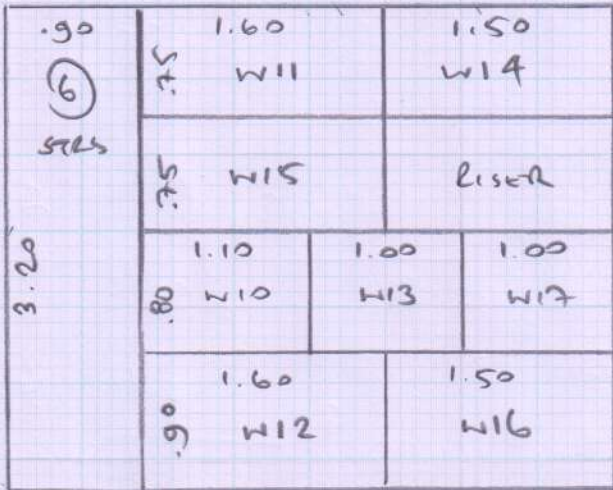 .90
6
STRS
3.20
1.60
.75
W11
1.50
W14
.75
W15
RISER
1.10
.80
W10
1.00
W13
1.00
W17
1.60
.90
W12
1.50
W16